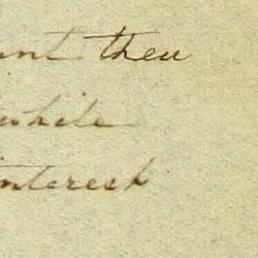 then
while
interest